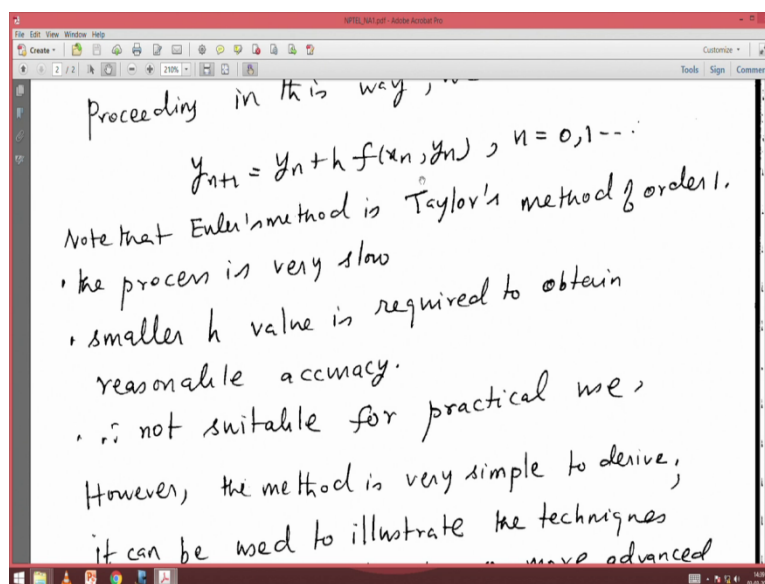 NPTEL_NA1.pdf - Adobe Acrobat Pro
File Edit View Window Help
Create Customize
2 / 2 210% Tools Sign Commen
Proceeding in this way,
yn+1 = yn + h f(xn, yn), n = 0,1---
Note that Euler's method is Taylor's method of order 1.
· the process is very slow
· smaller h value is required to obtain
reasonable accuracy.
· ∴ not suitable for practical use,
However, the method is very simple to derive,
it can be used to illustrate the techniques
more advanced